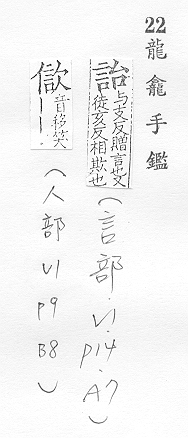 22 龍龕手鑑
詒 与支反贈言也又
徒亥反相欺也
(言部.V1.P14.A7)
音移笑
(人部 V1 P9 B8)